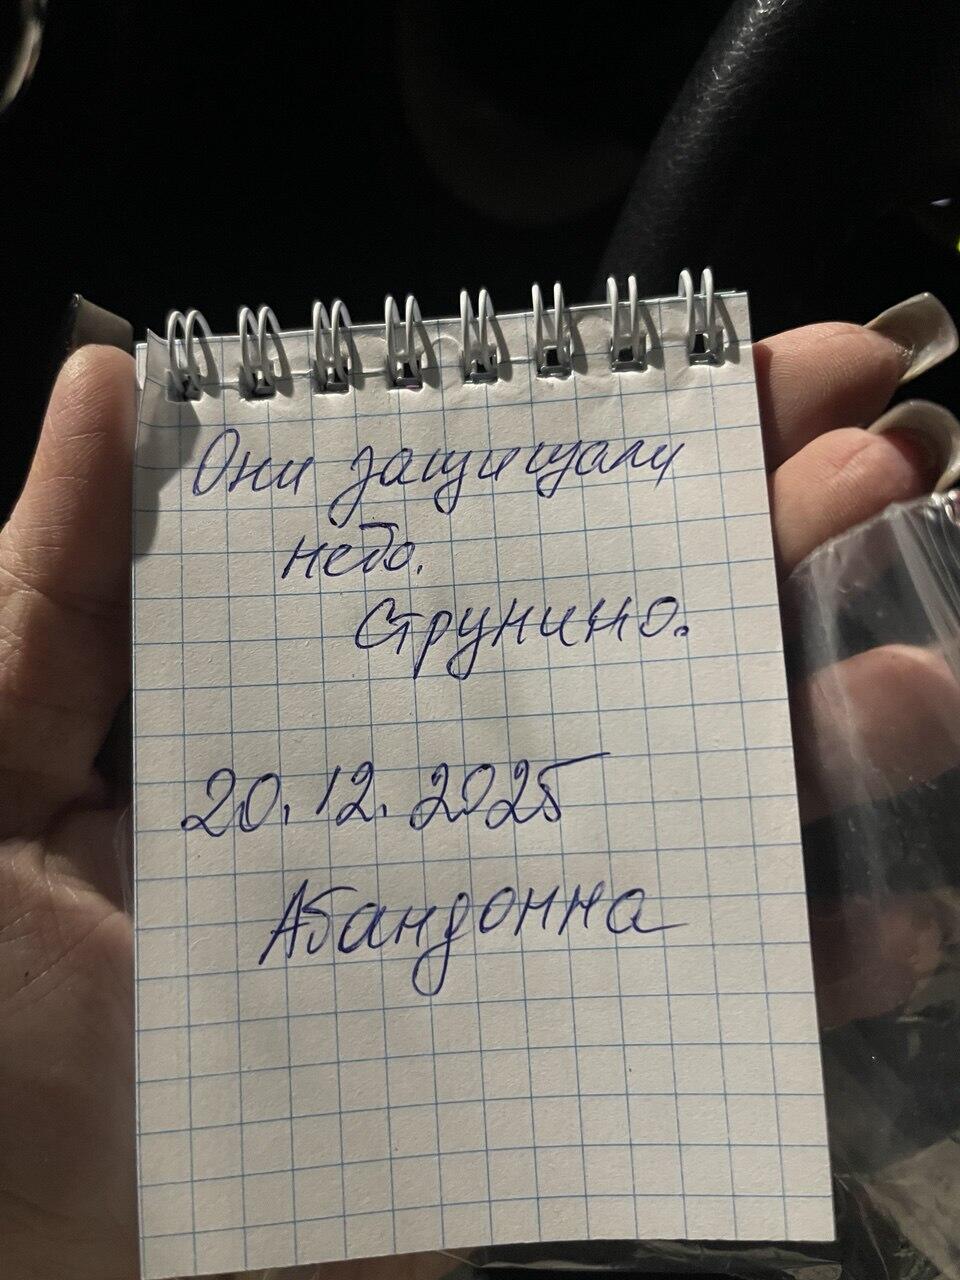 Они защищали
небо.
Струнино.
20.12.2025
Абандонна